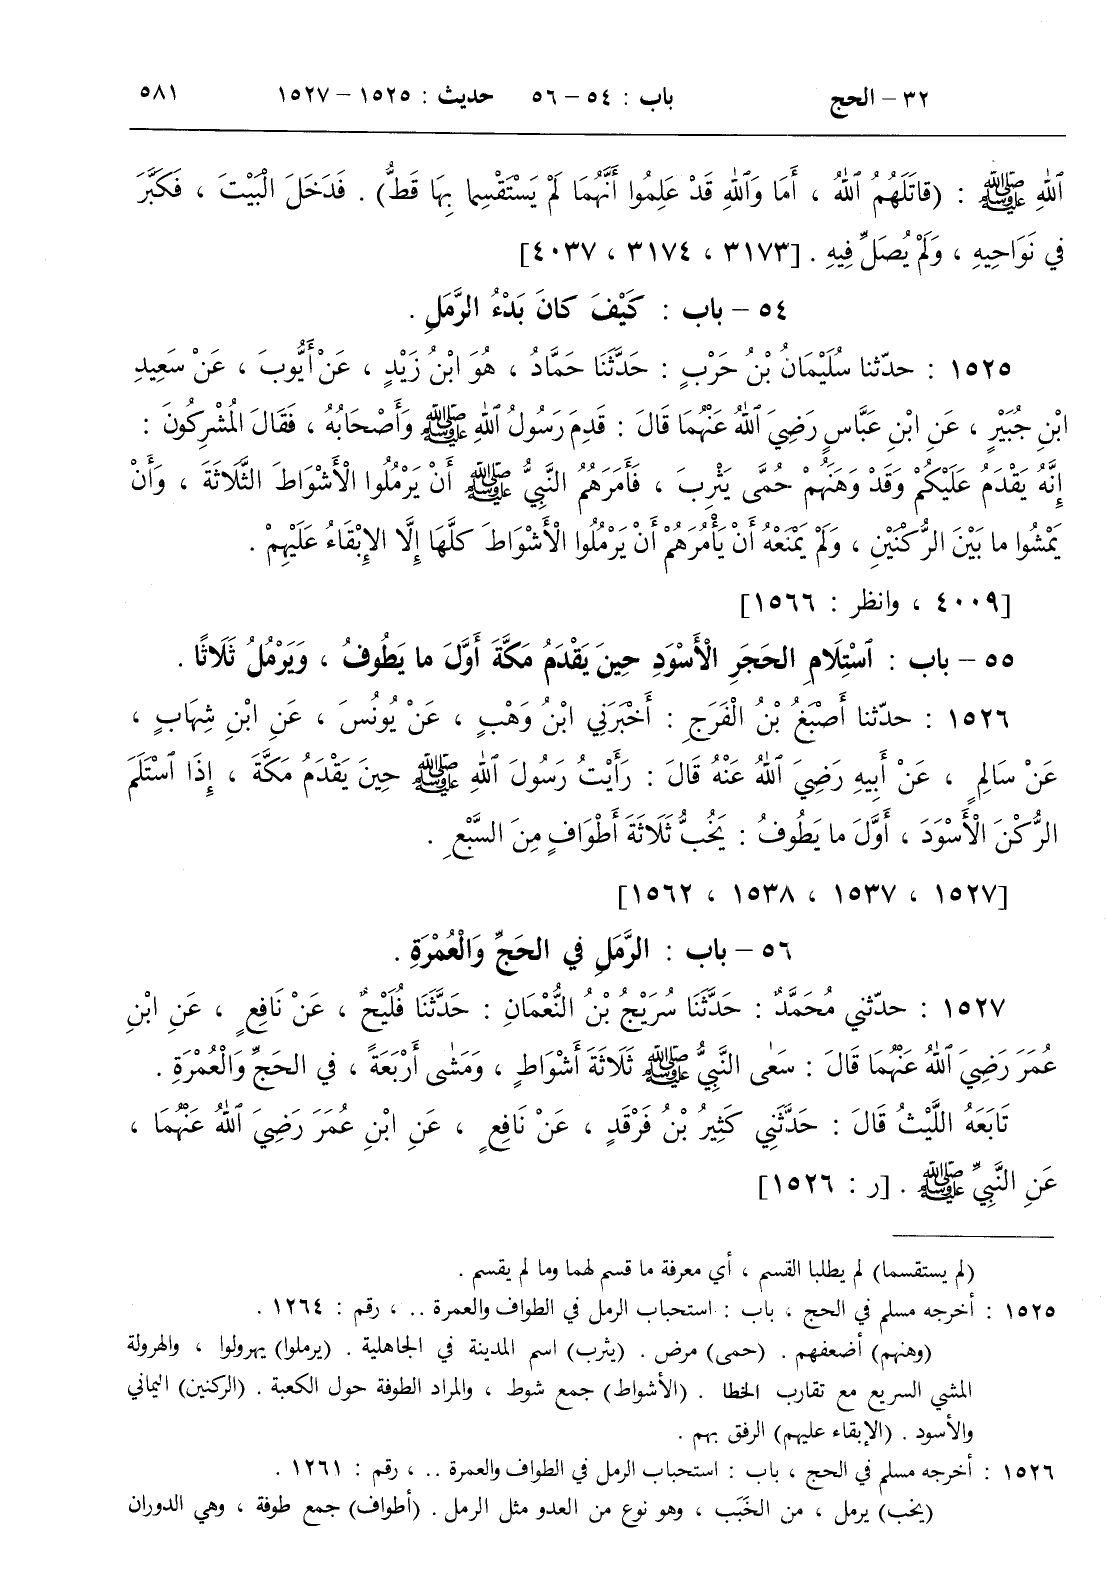 ٣٢ – الحج باب : ٥٤ – ٥٦ حديث : ١٥٢٥ – ١٥٢٧ ٥٨١
ٱللهِ ﷺ : (قاتَلَهُمُ ٱللهُ ، أَمَا وَٱللهِ قَدْ عَلِمُوا أَنَّهُمَا لَمْ يَسْتَقْسِما بِهَا قَطُّ) . فَدَخَلَ الْبَيْتَ ، فَكَبَّرَ
في نَوَاحِيهِ ، وَلَمْ يُصَلِّ فِيهِ . [٣١٧٣ ، ٣١٧٤ ، ٤٠٣٧]
٥٤ – باب : كَيْفَ كانَ بَدْءُ الرَّمَلِ .
١٥٢٥ : حدّثنا سُلَيْمَانُ بْنُ حَرْبٍ : حَدَّثَنَا حَمَّادُ ، هُوَ ابْنُ زَيْدٍ ، عَنْ أَيُّوبَ ، عَنْ سَعِيدِ
ابْنِ جُبَيْرٍ ، عَنِ ابْنِ عَبَّاسٍ رَضِيَ ٱللهُ عَنْهُمَا قَالَ : قَدِمَ رَسُولُ ٱللهِ ﷺ وَأَصْحَابُهُ ، فَقَالَ الْمُشْرِكُونَ :
إِنَّهُ يَقْدَمُ عَلَيْكُمْ وَقَدْ وَهَنَهُمْ حُمَّى يَثْرِبَ ، فَأَمَرَهُمُ النَّبِيُّ ﷺ أَنْ يَرْمُلُوا الْأَشْوَاطَ الثَّلَاثَةَ ، وَأَنْ
يَمْشُوا ما بَيْنَ الرُّكْنَيْنِ ، وَلَمْ يَمْنَعْهُ أَنْ يَأْمُرَهُمْ أَنْ يَرْمُلُوا الْأَشْوَاطَ كلَّهَا إِلَّا الإِبْقَاءُ عَلَيْهِمْ .
[٤٠٠٩ ، وانظر : ١٥٦٦]
٥٥ – باب : ٱسْتِلَامِ الحَجَرِ الْأَسْوَدِ حِينَ يَقْدَمُ مَكَّةَ أَوَّلَ ما يَطُوفُ ، وَيَرْمُلُ ثَلَاثًا .
١٥٢٦ : حدّثنا أَصْبَغُ بْنُ الْفَرَجِ : أَخْبَرَنِي ابْنُ وَهْبٍ ، عَنْ يُونُسَ ، عَنِ ابْنِ شِهَابٍ ،
عَنْ سَالِمٍ ، عَنْ أَبِيهِ رَضِيَ ٱللهُ عَنْهُ قَالَ : رَأَيْتُ رَسُولَ ٱللهِ ﷺ حِينَ يَقْدَمُ مَكَّةَ ، إِذَا ٱسْتَلَمَ
الرُّكْنَ الْأَسْوَدَ ، أَوَّلَ ما يَطُوفُ : يَخُبُّ ثَلَاثَةَ أَطْوَافٍ مِنَ السَّبْعِ .
[١٥٢٧ ، ١٥٣٧ ، ١٥٣٨ ، ١٥٦٢]
٥٦ – باب : الرَّمَلِ في الحَجِّ وَالْعُمْرَةِ .
١٥٢٧ : حدّثني مُحَمَّدٌ : حَدَّثَنَا سُرَيْجُ بْنُ النُّعْمَانِ : حَدَّثَنَا فُلَيْحٌ ، عَنْ نَافِعٍ ، عَنِ ابْنِ
عُمَرَ رَضِيَ ٱللهُ عَنْهُمَا قالَ : سَعٰى النَّبِيُّ ﷺ ثَلَاثَةَ أَشْوَاطٍ ، وَمَشٰى أَرْبَعَةً ، في الحَجِّ وَالْعُمْرَةِ .
تَابَعَهُ اللَّيْثُ قَالَ : حَدَّثَنِي كَثِيرُ بْنُ فَرْقَدٍ ، عَنْ نَافِعٍ ، عَنِ ابْنِ عُمَرَ رَضِيَ ٱللهُ عَنْهُمَا ،
عَنِ النَّبِيِّ ﷺ . [ر : ١٥٢٦]
(لم يستقسما) لم يطلبا القسم ، أي معرفة ما قسم لهما وما لم يقسم .
١٥٢٥ : أخرجه مسلم في الحج ، باب : استحباب الرمل في الطواف والعمرة .. ، رقم : ١٢٦٤ .
(وهنهم) أضعفهم . (حمى) مرض . (يثرب) اسم المدينة في الجاهلية . (يرملوا) يهرولوا ، والهرولة
المشي السريع مع تقارب الخطا . (الأشواط) جمع شوط ، والمراد الطوفة حول الكعبة . (الركنين) اليماني
والأسود . (الإبقاء عليهم) الرفق بهم .
١٥٢٦ : أخرجه مسلم في الحج ، باب : استحباب الرمل في الطواف والعمرة .. ، رقم : ١٢٦١ .
(يخب) يرمل ، من الخَبَب ، وهو نوع من العدو مثل الرمل . (أطواف) جمع طوفة ، وهي الدوران